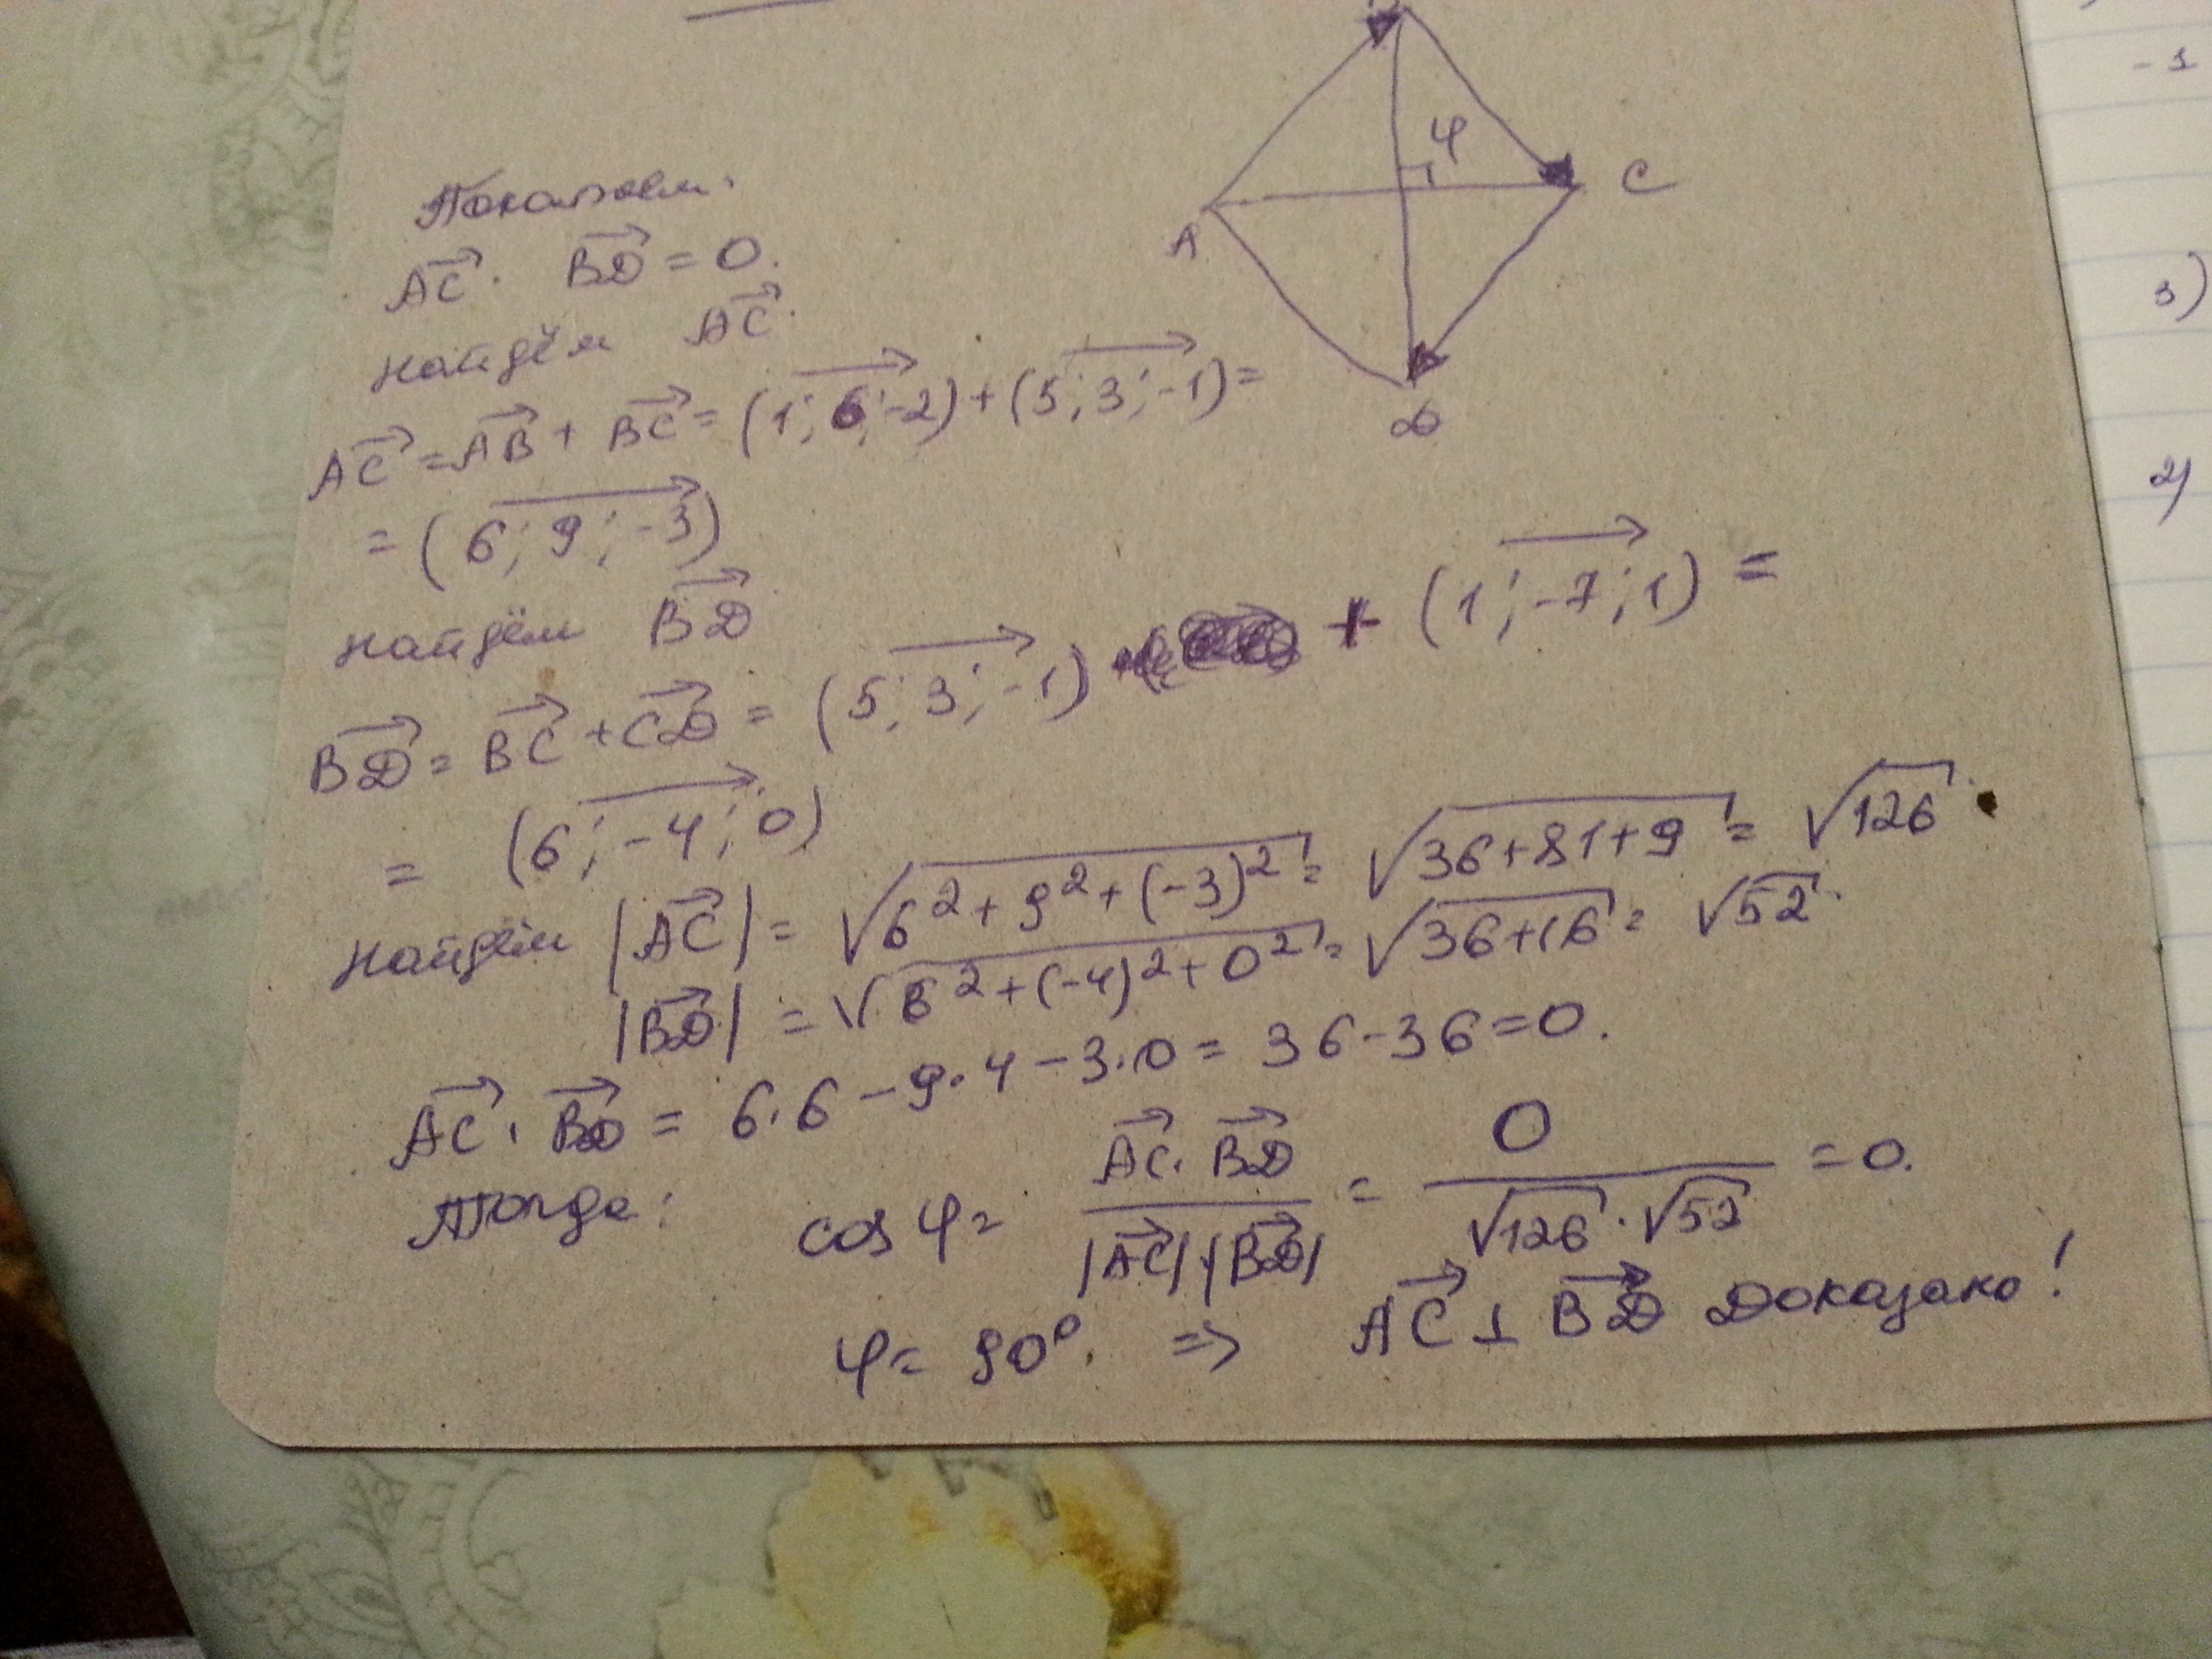 φ
C
A
D
Покажем:
AC⃗ · BD⃗ = 0.
Найдём AC⃗.
AC⃗ = AB⃗ + BC⃗ = (1; 6; -2) + (5; 3; -1) =
= (6; 9; -3)
Найдём BD⃗
BD⃗ = BC⃗ + CD⃗ = (5; 3; -1) + (1; -7; 1) =
= (6; -4; 0)
Найдём |AC⃗| = √(6² + 9² + (-3)²) = √(36+81+9) = √126.
|BD⃗| = √(6² + (-4)² + 0²) = √(36+16) = √52.
AC⃗ · BD⃗ = 6·6 - 9·4 - 3·0 = 36-36=0.
Тогда: cos φ = AC⃗·BD⃗ / |AC⃗|·|BD⃗| = 0 / √126·√52 = 0.
φ = 90°. ⇒ AC⃗ ⊥ BD⃗ Доказано!
-1
3)
2)